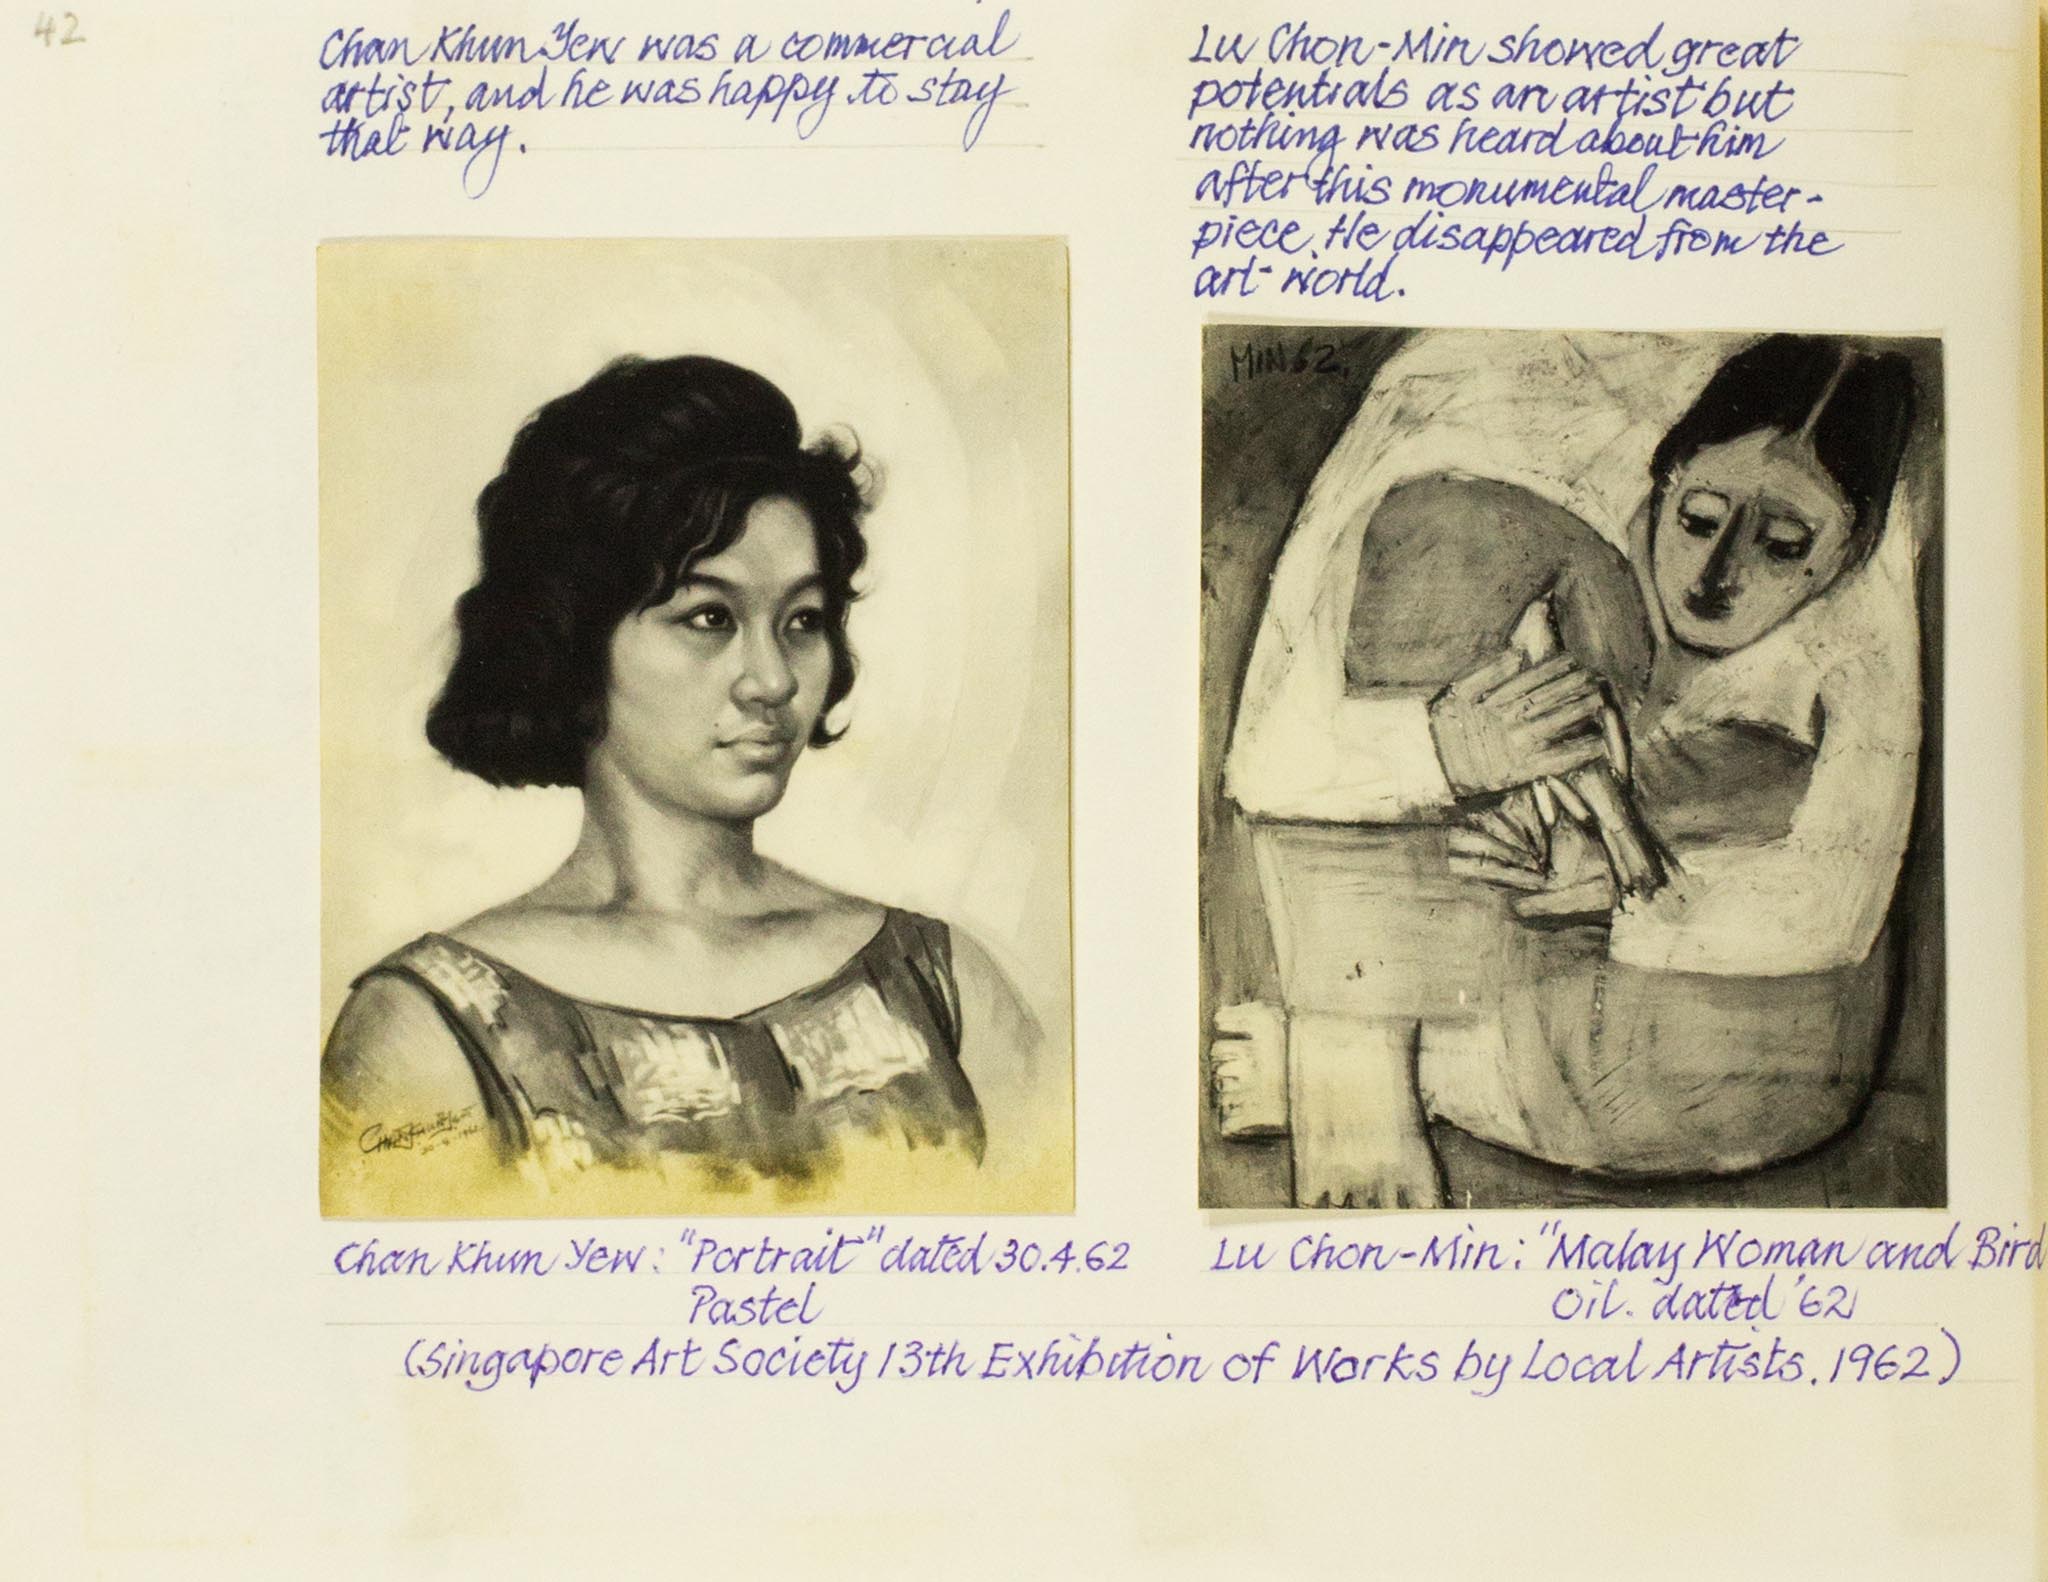 42
Chan Khun Yew was a commercial
artist, and he was happy to stay
that way.
Lu Chon-Min showed great
potentials as an artist but
nothing was heard about him
after this monumental master-
piece. He disappeared from the
art world.
MIN 62.
30-4-1962
Chan Khun Yew: "Portrait" dated 30.4.62
Pastel
Lu Chon-Min: "Malay Woman and Bird
Oil. dated '62
(Singapore Art Society 13th Exhibition of Works by Local Artists. 1962)